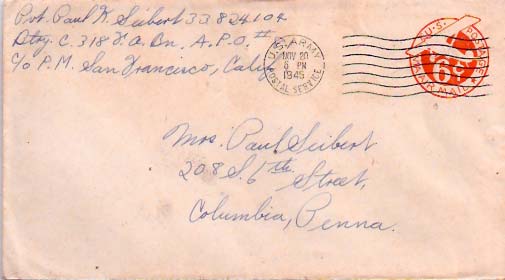 Pvt. Paul K. Seibert 33824104
Btry. C. 318 F.A. Bn. A.P.O. #
C/o P.M. San Francisco, Calif.
U.S. ARMY
NOV 20
6 PM
1945
POSTAL SERVICE
U.S. POSTAGE
6¢
VIA AIR MAIL
Mrs. Paul Seibert
208 S. 6th Street,
Columbia, Penna.